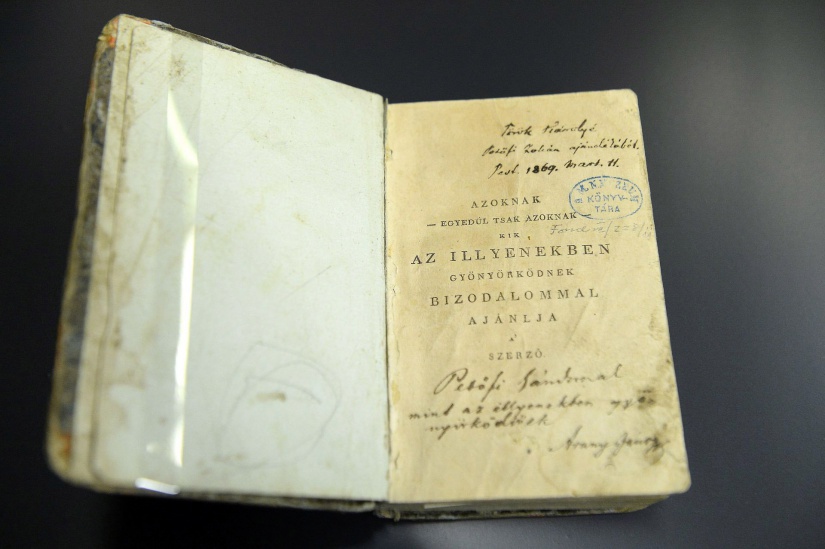 Török Károlyé
Petőfi Zoltán ajándékából.
Pest. 1869. Mart. 11.
M. KIR. ZENE
KÖNYV-
TÁRA
AZOKNAK
— EGYEDÜL TSAK AZOKNAK —
KIK
AZ ILLYENEKBEN
GYÖNYÖRKÖDNEK
BIZODALOMMAL
AJÁNLJA
A'
SZERZŐ
Petőfi Sándornak
mint az illyenekben gyö-
nyörködőnek
Arany János